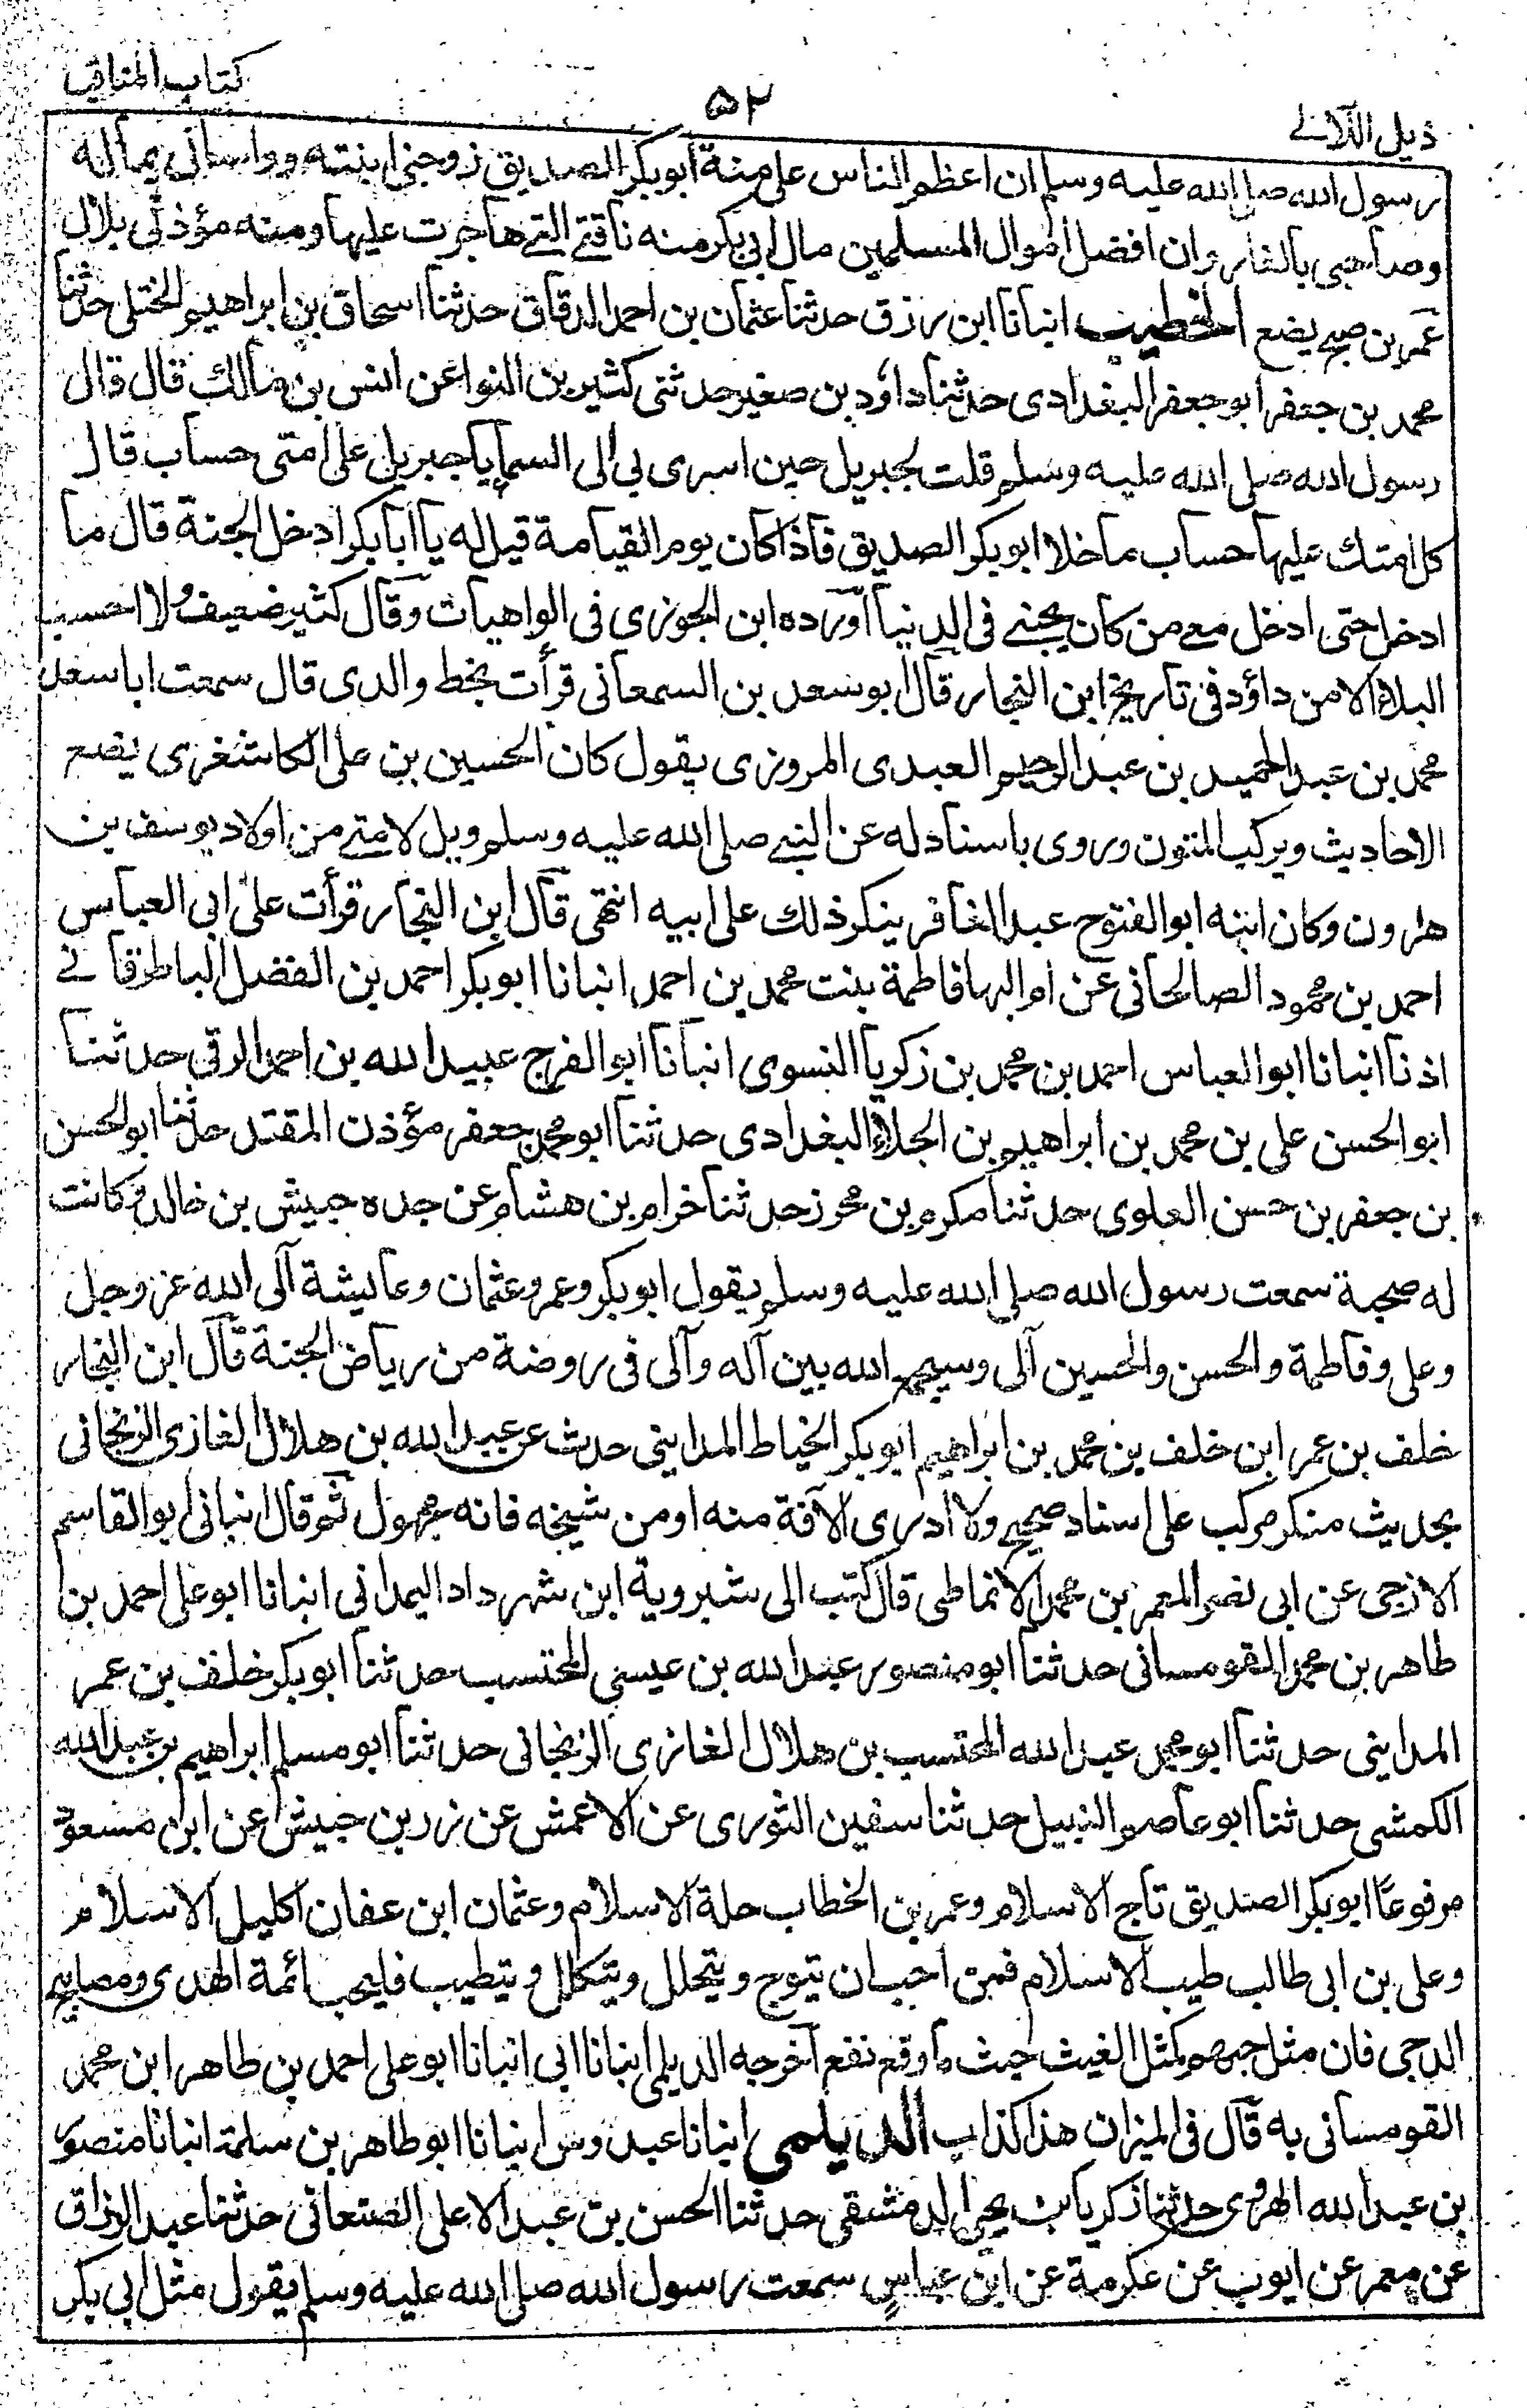 كتاب المناقب
۵۲
ذيل اللآلے
رسول الله صلى الله عليه وسلم ان اعظم الناس على منة ابو بكر الصديق زوجنى ابنته وواسانى بماله
وصاحبى بالغار وان افضل اموال المسلمين مال ابى بكر منه ناقتے التے هاجرت عليها ومنه مؤذنى بلال
عمر بن صبح يضع الخطيب انبانا ابن رزق حدثنا عثمان بن احمد الدقاق حدثنا اسحاق بن ابراهيم الختلى حدثنا
محمد بن جعفر ابو جعفر البغدادى حدثنا داؤد بن صغير حدثنى كثير بن النوا عن انس بن مالك قال قال
رسول الله صلى الله عليه وسلم قلت لجبريل حين اسرى بى الى السما يا جبريل على امتى حساب قال
كل امتك عليها حساب ما خلا ابو بكر الصديق فاذا كان يوم القيامة قيل له يا ابا بكر ادخل الجنة قال ما
ادخل حتى ادخل معے من كان يحبنے فى الدنيا اورده ابن الجوزى فى الواهيات وقال كثير ضعيف ولا احسب
البلاء الا من داؤد فى تاريخ ابن النجار قال ابو سعد بن السمعانى قرأت بخط والدى قال سمعت ابا سعد
محمد بن عبد الحميد بن عبد الرحيم العبدى المروزى يقول كان الحسين بن على الكاشغرى يضع
الاحاديث ويركب المتون وروى باسناد له عن النبے صلى الله عليه وسلم ويل لامتے من اولاد يوسف بن
هارون وكان ابنه ابو الفتوح عبد الغافر ينكر ذلك على ابيه انتهى قال ابن النجار قرأت على ابى العباس
احمد بن محمود الصالحانى عن ام البها فاطمة بنت محمد بن احمد انبانا ابو بكر احمد بن الفضل الباطرقانے
اذنا انبانا ابو العباس احمد بن محمد بن زكريا النسوى انبانا ابو الفرج عبيد الله بن احمد الرقى حدثنا
ابو الحسن على بن محمد بن ابراهيم بن الجلاء البغدادى حدثنا ابو محمد جعفر مؤذن المقتد حدثنا ابو الحسن
بن جعفر بن حسن العلوى حدثنا مكرم بن محرز حدثنا خرام بن هشام عن جده جيش بن خالد وكانت
له صحبة سمعت رسول الله صلى الله عليه وسلم يقول ابو بكر وعمر وعثمان وعايشة آلى الله عز وجل
وعلى وفاطمة والحسن والحسين آلى وسيجمع الله بين آله وآلى فى روضة من رياض الجنة قال ابن النجار
خلف بن عمر ابن خلف بن محمد بن ابراهيم ابو بكر الخياط المداينى حدث عن عبيد الله بن هلال الغازى الزنجانى
بحديث منكر مركب على اسناد صحيح ولا ادرى الآفة منه او من شيخه فانه مجهول ثم قال انبانى ابو القاسم
الازجى عن ابى نصر المعمر بن محمد الانماطى قال كتب الى شيروية ابن شهرداد اليمدانى انبانا ابو على احمد بن
طاهر بن محمد القومسانى حدثنا ابو منصور عبد الله بن عيسى المحتسب حدثنا ابو بكر خلف بن عمر
المداينى حدثنا ابو محمد عبد الله المحتسب بن هلال الغازى الزنجانى حدثنا ابو مسلم ابراهيم بن عبد الله
الكمشى حدثنا ابو عاصم النبيل حدثنا سفين الثورى عن الاعمش عن زر بن حبيش عن ابن مسعود
مرفوعا ابو بكر الصديق تاج الاسلام وعمر بن الخطاب حلة الاسلام وعثمان ابن عفان اكليل الاسلام
وعلى بن ابى طالب طيب الاسلام فمن احب ان يتوج ويتحلل ويتكلل ويتطيب فليحب ائمة الهدى ومصابيح
الدجى فان مثل حبهم كمثل الغيث حيث ما وقع نفع اخرجه الديلمى انبانا ابى انبانا ابو على احمد بن طاهر ابن محمد
القومسانى به قال فى الميزان هذا كذاب الديلمى انبانا عبدوس انبانا ابو طاهر بن سلمة انبانا منصور
بن عبد الله الهروى حدثنا زكريا بن يحيى الدمشقى حدثنا الحسن بن عبد الاعلى الصنعانى حدثنا عبد الرزاق
عن معمر عن ايوب عن عكرمة عن ابن عباس سمعت رسول الله صلى الله عليه وسلم يقول مثل ابى بكر